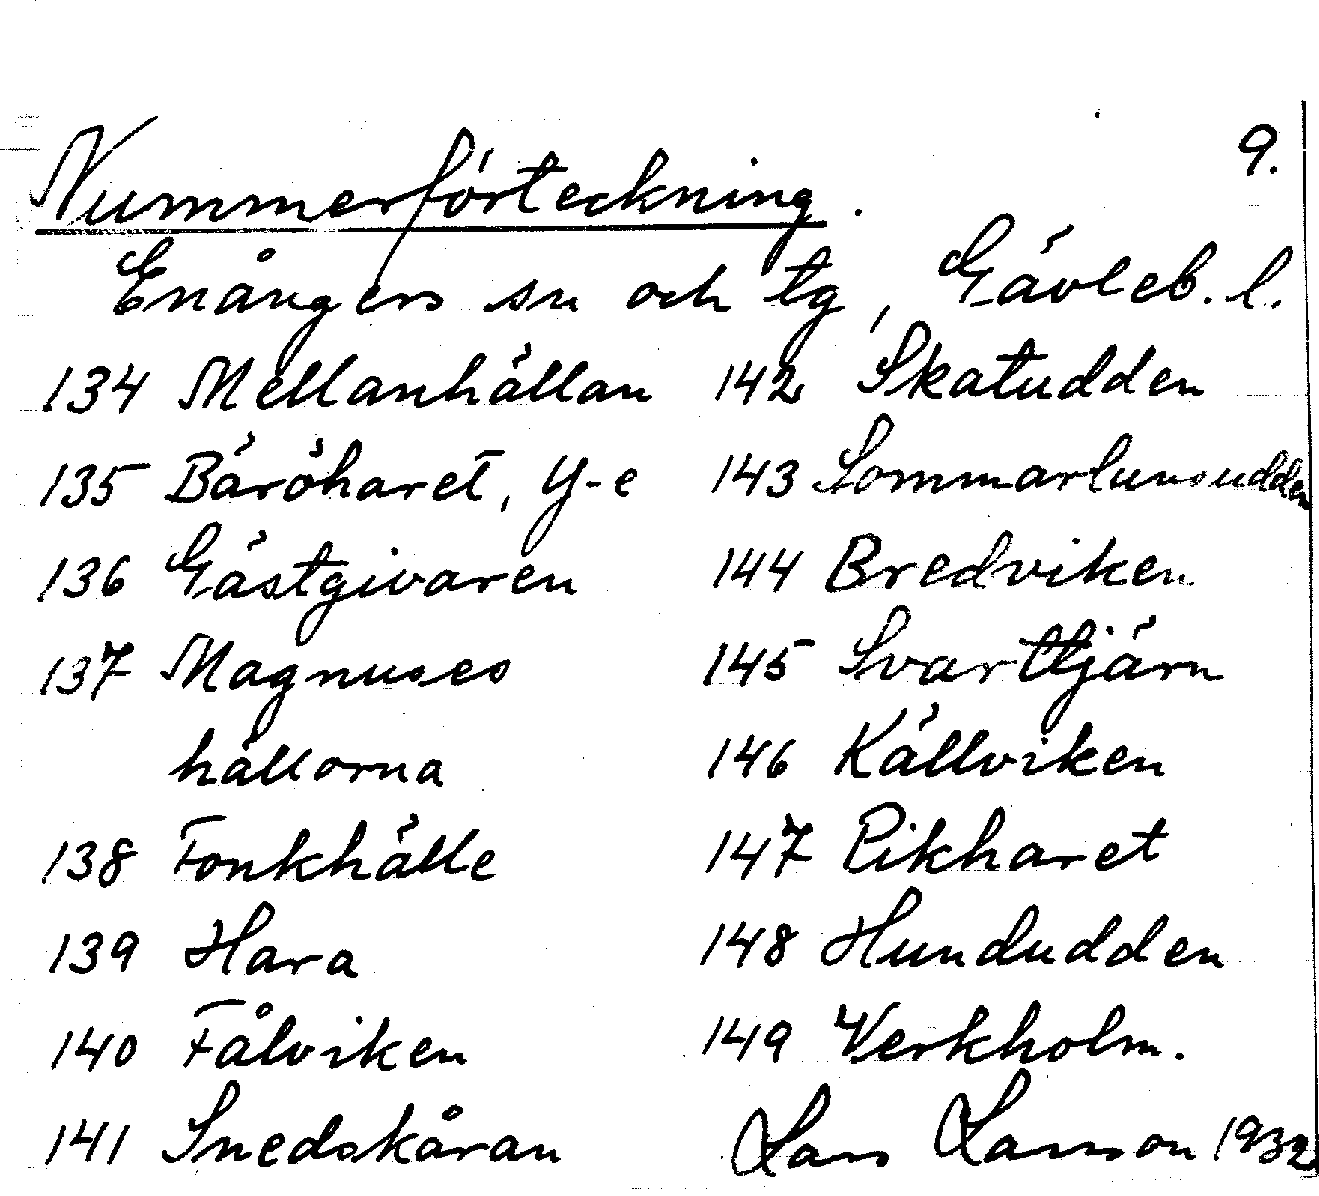 9.
Nummerförteckning.
Enångers sn och tg, Gävleb. l.
134 Mellanhällan
135 Bäröharet, Y-e
136 Gästgivaren
137 Magnuses
hällorna
138 Fonkhälle
139 Hara
140 Fålviken
141 Snedskåran
142 Skatudden
143 Sommarlunsudden
144 Bredviken
145 Svarttjärn
146 Källviken
147 Pikharet
148 Hundudden
149 Verkholm.
Lars Larsson 1932